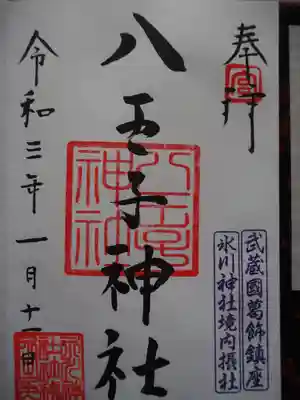 奉拝
武蔵國葛飾鎮座
氷川神社境内摂社
八王子神社
令和三年一月十一日